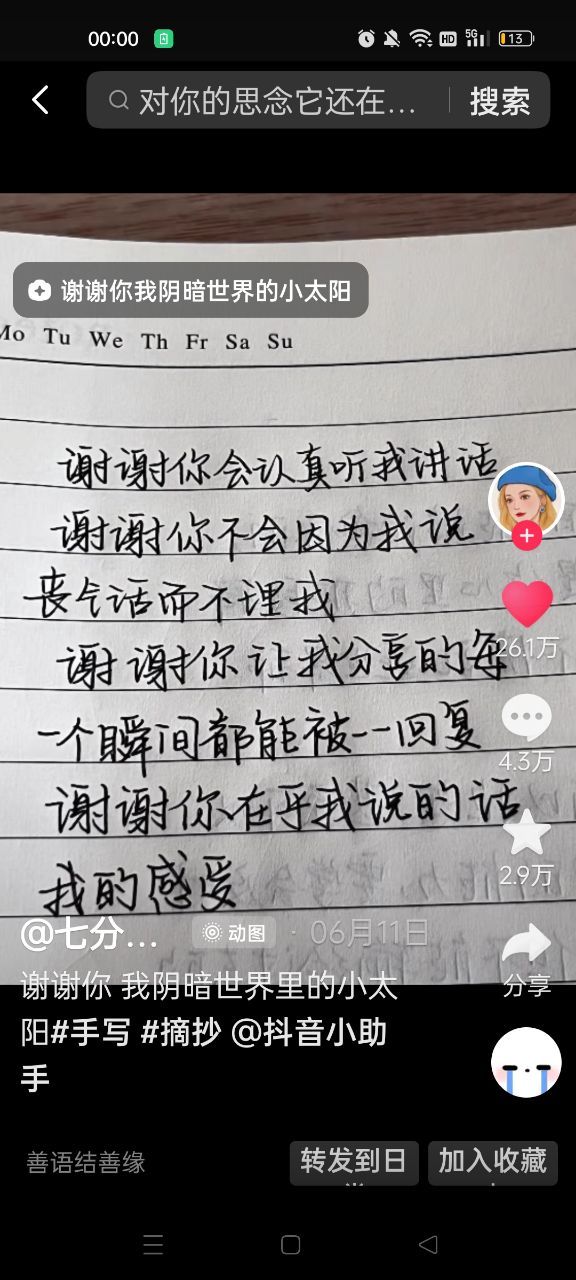 00:00
HD
5G
13
对你的思念它还在...
搜索
谢谢你我阴暗世界的小太阳
Mo Tu We Th Fr Sa Su
谢谢你会认真听我讲话
谢谢你不会因为我说
丧气话而不理我
谢谢你让我分享的每
一个瞬间都能被一一回复
谢谢你在乎我说的话
我的感受
26.1万
4.3万
2.9万
分享
@七分...
动图
· 06月11日
谢谢你 我阴暗世界里的小太
阳#手写 #摘抄 @抖音小助
手
善语结善缘
转发到日
加入收藏